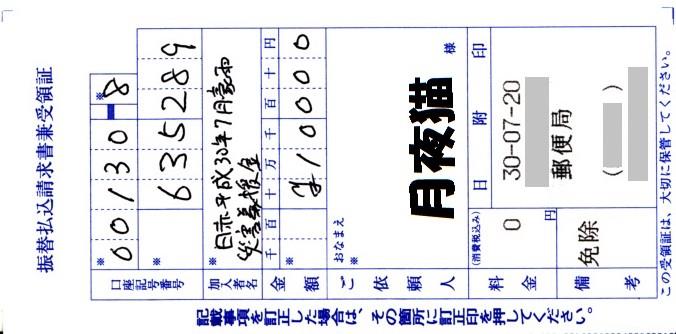 振替払込請求書兼受領証
口座記号番号
※ 00130-8 ※
※ 635289
加入者名
※ 日赤平成30年7月豪雨
災害義援金
金額
千百十万千百十円
※ ¥10000
ご依頼人
おなまえ
※
月夜猫 様
料金
(消費税込み)
0 円
日附印
30-07-20
郵便局
( )
備考
免除
この受領証は、大切に保管してください。
記載事項を訂正した場合は、その箇所に訂正印を押してください。